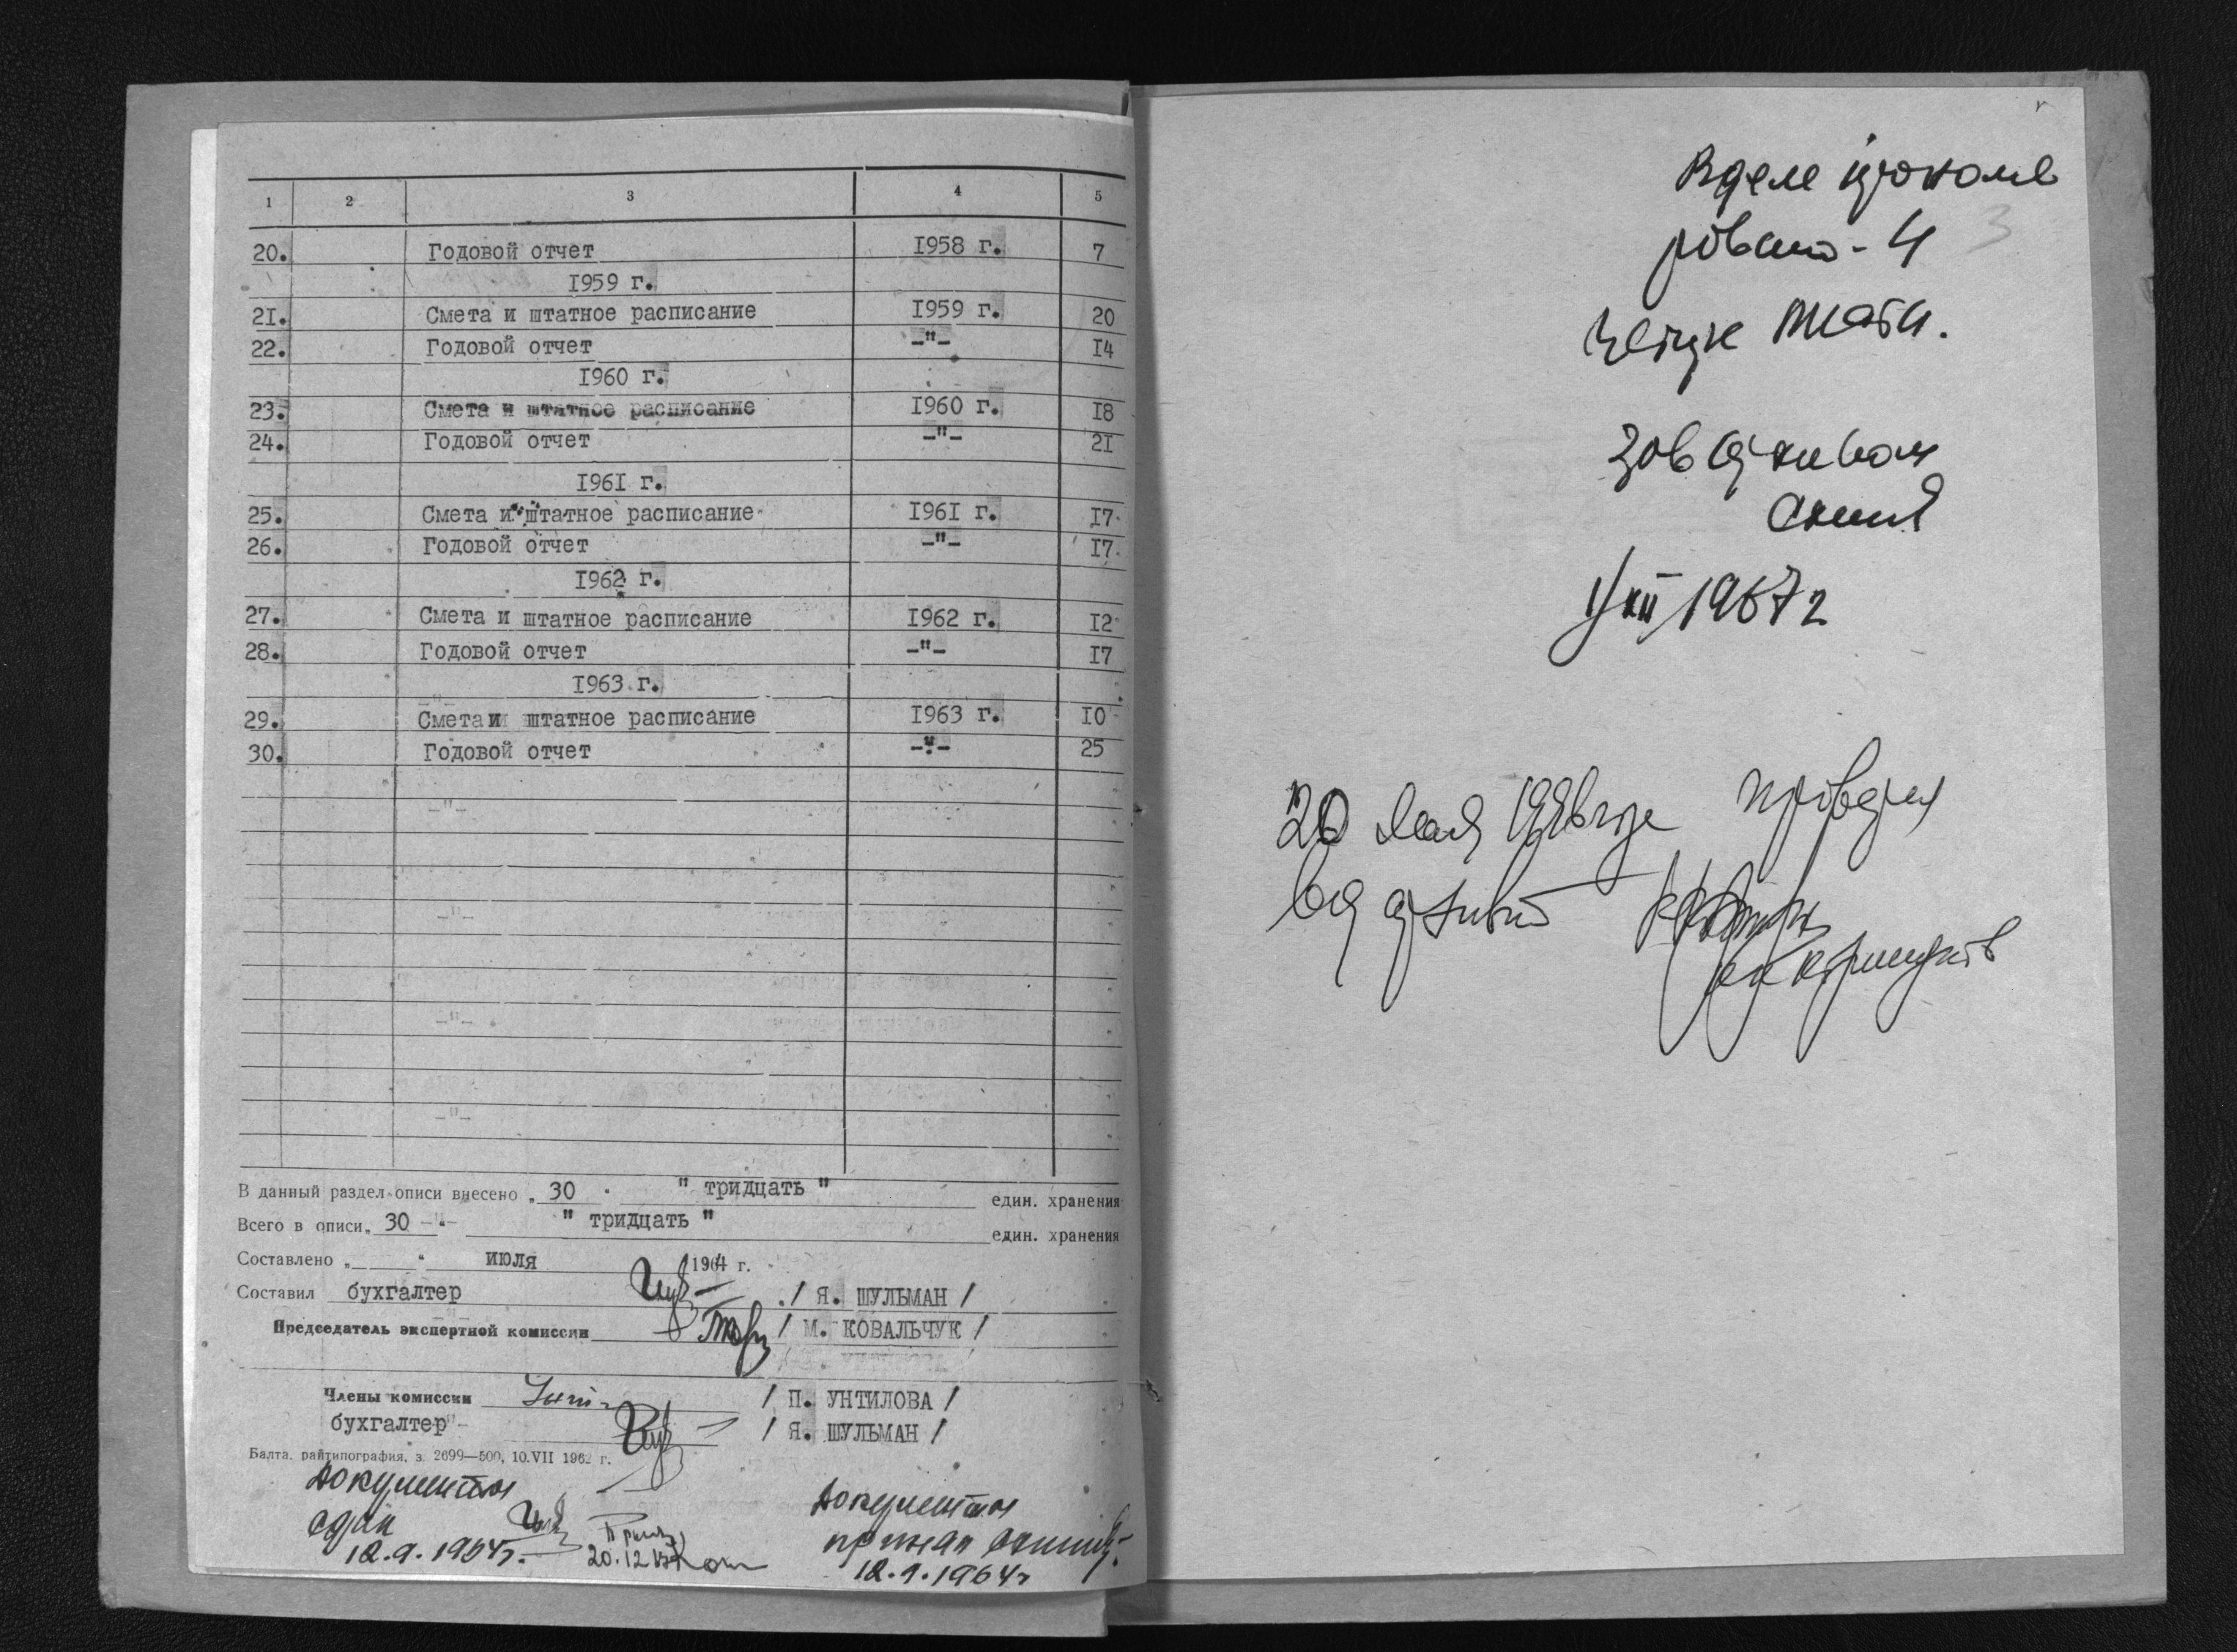 1 2 3 4 5
20. Годовой отчет 1958 г. 7
1959 г.
21. Смета и штатное расписание 1959 г. 20
22. Годовой отчет -"- 14
1960 г.
23. Смета и штатное расписание 1960 г. 18
24. Годовой отчет -"- 21
1961 г.
25. Смета и штатное расписание 1961 г. 17
26. Годовой отчет -"- 17
1962 г.
27. Смета и штатное расписание 1962 г. 12
28. Годовой отчет -"- 17
1963 г.
29. Смета и штатное расписание 1963 г. 10
30. Годовой отчет -"- 25
В данный раздел описи внесено „ 30 " тридцать " един. хранения
Всего в описи „ 30 -"- " тридцать " един. хранения
Составлено „ " июля 1964 г.
Составил бухгалтер / Я. ШУЛЬМАН /
Председатель экспертной комиссии / М. КОВАЛЬЧУК /
Члены комиссии / П. УНТИЛОВА /
бухгалтер / Я. ШУЛЬМАН /
Балта, райтипография, з. 2699—500, 10.VII 1962 г.
Документы
сдал
12.9.1964г.
20.12
Документы
принял
12.9.1964г
В деле пронуме
ровано - 4
3
четыре листа.
Зав архивом
1/XII 1967 г
20 мая проверил